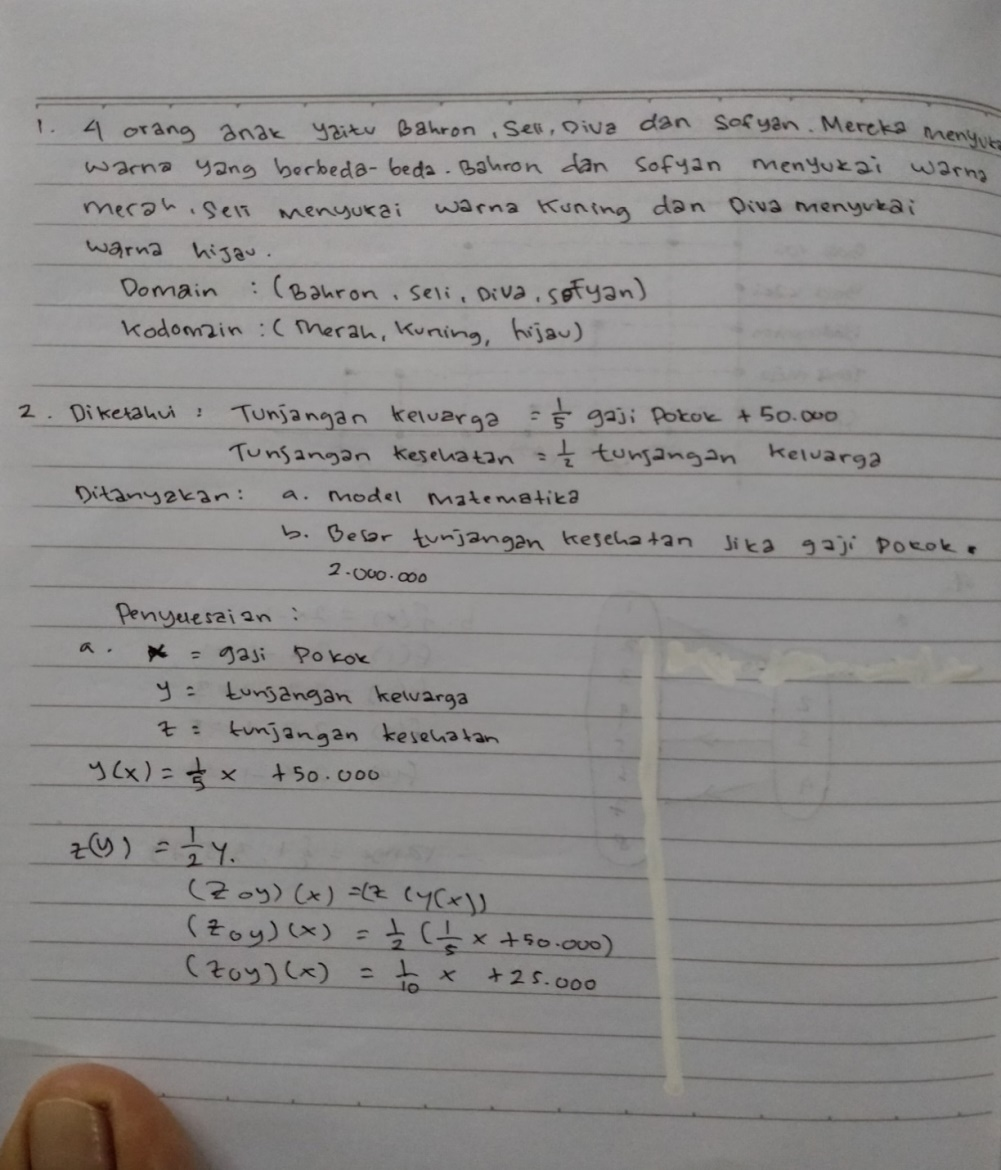 1. 4 orang anak yaitu Bahron, Seli, Diva dan Sofyan. Mereka menyuka
warna yang berbeda-beda. Bahron dan Sofyan menyukai warna
merah, Seli menyukai warna Kuning dan Diva menyukai
warna hijau.
Domain : (Bahron, Seli, Diva, Sofyan)
Kodomain : (Merah, Kuning, hijau)
2. Diketahui : Tunjangan keluarga = 1/5 gaji Pokok + 50.000
Tunjangan kesehatan = 1/2 tunjangan keluarga
Ditanyakan : a. Model Matematika
b. Besar tunjangan kesehatan Jika gaji Pokok
2.000.000
Penyelesaian :
a. x = gaji Pokok
y = tunjangan keluarga
z = tunjangan kesehatan
y(x) = 1/5 x + 50.000
z(y) = 1/2 y.
(z o y) (x) = (z (y(x))
(z o y) (x) = 1/2 (1/5 x + 50.000)
(z o y) (x) = 1/10 x + 25.000